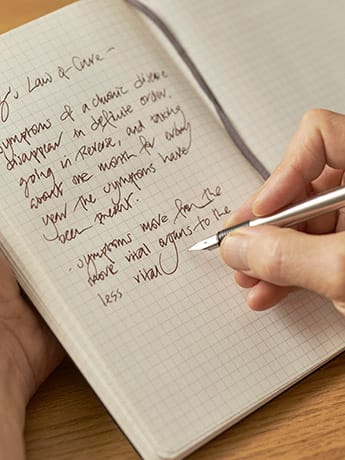 's Law of Cure -
symptoms of a chronic disease
disappear in definite order,
going in reverse, and taking
about one month for every
year the symptoms have
been present.
- symptoms move from the
more vital organs to the
less vital